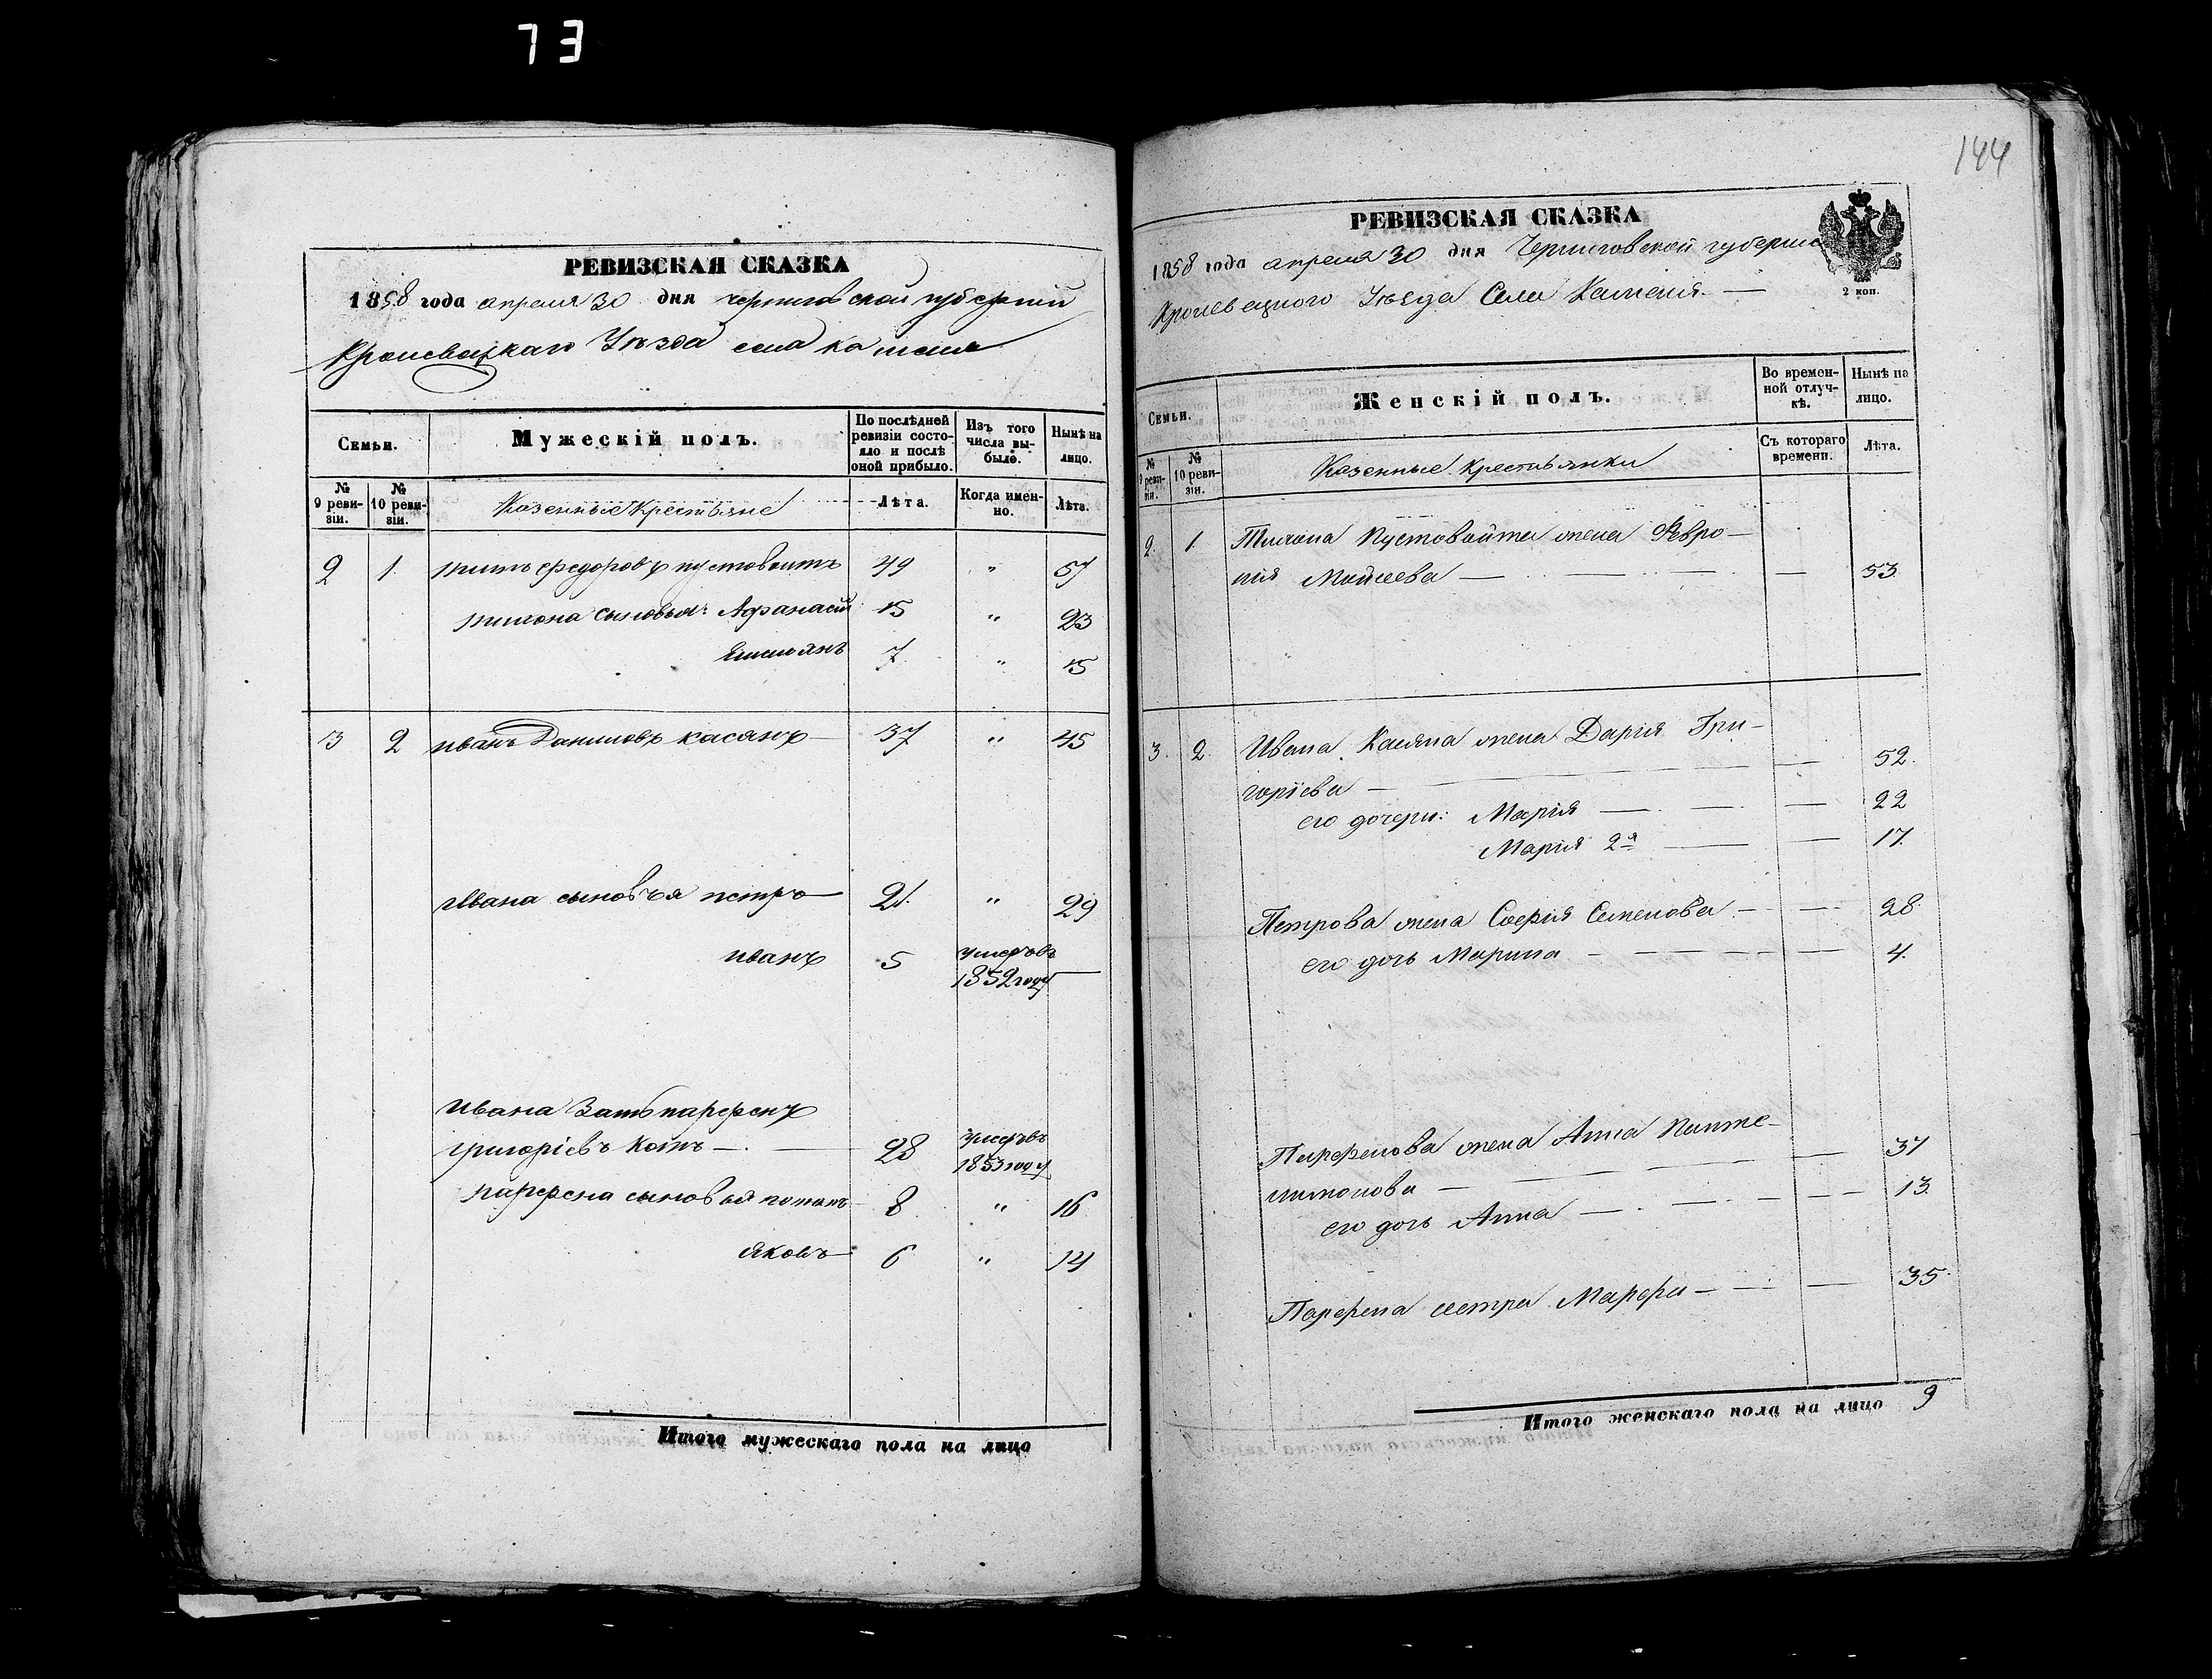 73
РЕВИЗСКАЯ СКАЗКА
1858 года апреля 30 дня черниговской губерніи
Кролевецкаго Уезда села каменя
Семьи.
Мужескій полъ.
По послѣдней ревизіи состояло и послѣ оной прибыло.
Изъ того числа выбыло.
Нынѣ на лицо.
№ 9 ревизіи.
№ 10 ревизіи.
Казенные Крестьяне
Лѣта.
Когда именно.
Лѣта.
2 1. федоровъ пустовоитъ 49 " 57
тимона сыновья: Афанасій 15 " 23
Емельянъ 7. " 15
3 2 иванъ Даниловъ касянъ 37 " 45
Ивана сыновъя петръ 21. " 29
иванъ 5 умеръ въ
1852 году
ивана Зять парфенъ
григоріевъ котъ 28 умеръ въ
1853 году
парфена сыновья потапъ 8 " 16
яковъ 6 " 14
Итого мужескаго пола на лицо
144
РЕВИЗСКАЯ СКАЗКА
1858 года апреля 30 дня Черниговской губерніи
Кролевецкого Уезда Села Каменя.
2 коп.
Семьи.
Женскій полъ.
Во временной отлучкѣ.
Нынѣ на лицо.
№ 9 ревизіи.
№ 10 ревизіи.
Казенные крестьянки
Съ котораго времени.
Лѣта.
2. 1. Тимона Пустовойта жена Февро-
нія Моисеева 53.
3. 2. Ивана Касяна жена Дарія Гри-
горіева 52.
его дочери: Марія 22
Марія 2я 17.
Петрова жена Софія Семенова 28.
его дочь Марина 4.
Парфенова жена Анна Панте-
лимонова 37
его дочь Анна 13.
Парфена сестра Марфа 35.
Итого женскаго пола на лицо 9